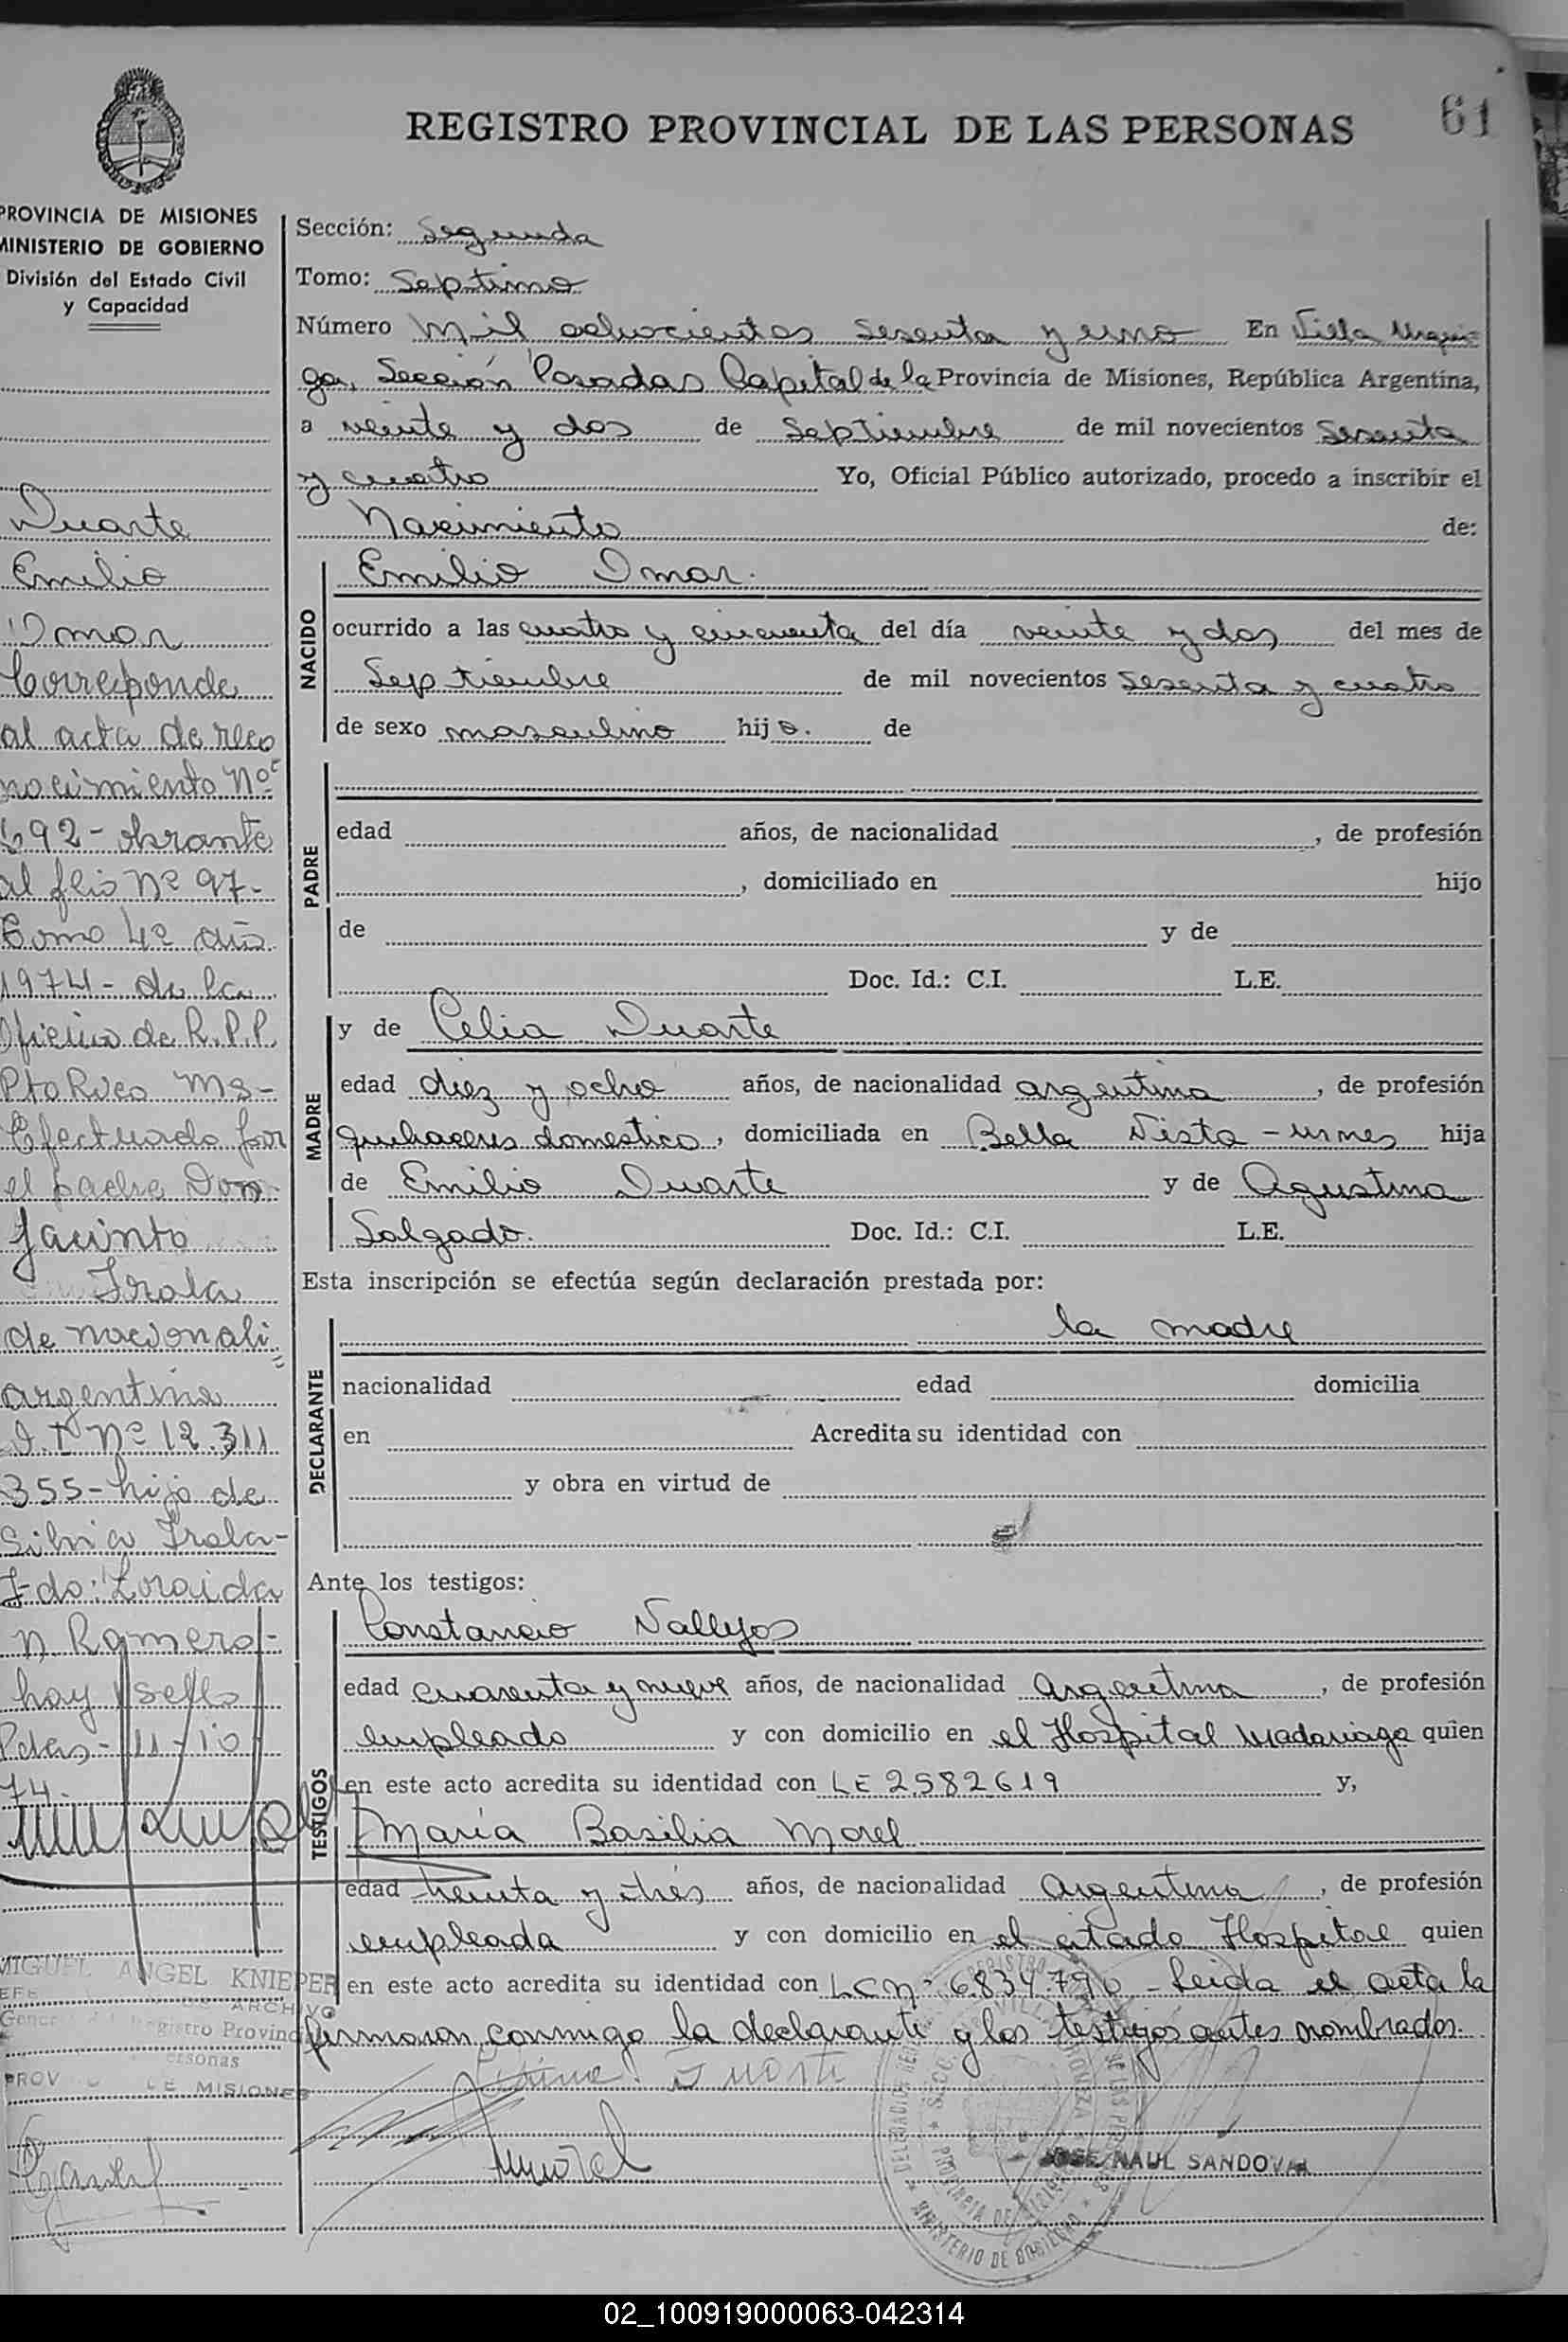 REGISTRO PROVINCIAL DE LAS PERSONAS
61
PROVINCIA DE MISIONES
MINISTERIO DE GOBIERNO
División del Estado Civil
y Capacidad
Duarte
Emilio
Omar
Corresponde
al acta de reco
nocimiento Nº
692- obrante
al flio Nº 97-
Tomo 4º año
1974- de la
Oficina de R.P.P.
Pto Rico Ms-
Efectuado por
el padre Don
Jacinto
Irala
de nacionali
argentina
D.I Nº 12.311
355- hijo de
Silvia Irala-
Fdo: Zoraida
N. Romero-
hay sello
Pdas- 11-10
74.
MIGUEL ANGEL KNIEPER
JEFE ARCHIVO
General del Registro Provincial
Personas
PROV DE MISIONES
Sección: Segunda
Tomo: Septimo
Número mil ochocientos sesenta y uno En Villa Urqui-
za, Sección Posadas Capital de la Provincia de Misiones, República Argentina,
a veinte y dos de Septiembre de mil novecientos sesenta
y cuatro Yo, Oficial Público autorizado, procedo a inscribir el
Nacimiento de:
NACIDO
Emilio Omar.
ocurrido a las cuatro y cincuenta del día veinte y dos del mes de
Septiembre de mil novecientos sesenta y cuatro
de sexo masculino hijo. de
PADRE
edad años, de nacionalidad , de profesión
, domiciliado en hijo
de y de
Doc. Id.: C.I. L.E.
MADRE
y de Celia Duarte
edad diez y ocho años, de nacionalidad argentina , de profesión
quehaceres domestico, domiciliada en Bella Vista - hija
de Emilio Duarte y de Agustina
Salgado. Doc. Id.: C.I. L.E.
Esta inscripción se efectúa según declaración prestada por:
DECLARANTE
la madre
nacionalidad edad domicilia
en Acredita su identidad con
y obra en virtud de
Ante los testigos:
TESTIGOS
Constancio Vallejos
edad cuarenta y nueve años, de nacionalidad Argentina , de profesión
empleado y con domicilio en el Hospital Madariaga quien
en este acto acredita su identidad con LE 2.582619 y,
María Basilia Morel
edad treinta y trés años, de nacionalidad Argentina , de profesión
empleada y con domicilio en el citado Hospital quien
en este acto acredita su identidad con LC nº 6.834.790 - Leida el acta la
firmaron conmigo la declarante y los testigos antes nombrados.
Duarte
Morel
JOSE RAUL SANDOVAL
MINISTERIO DE GOBIERNO
02_100919000063-042314